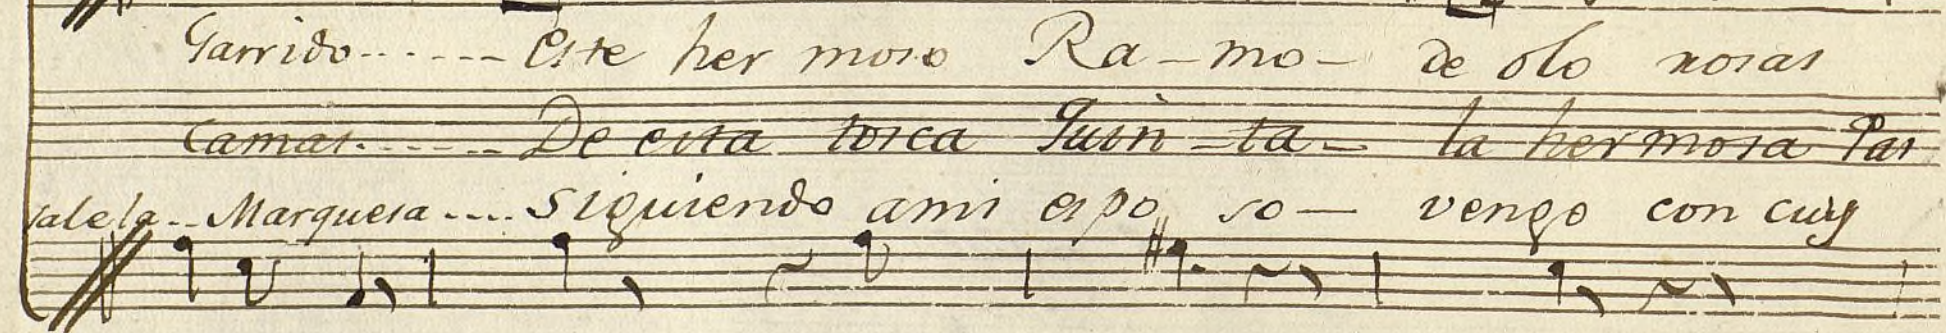 Garrido------ Este her moso Ra-mo- de olo rosas
Camas.------ De esta tosca Quin-ta- la hermosa Pas
sale la-- Marquesa---- Siguiendo ami espo so- vengo con cuy